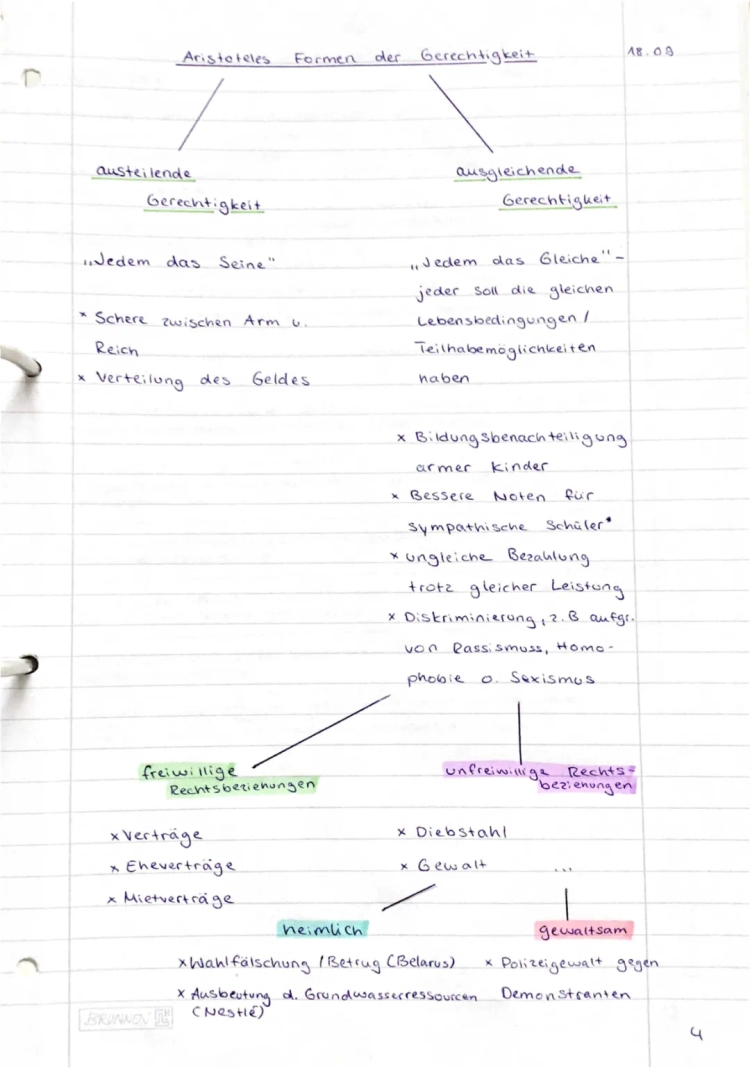 Aristoteles Formen der Gerechtigkeit 18.09
austeilende
Gerechtigkeit
ausgleichende
Gerechtigkeit
„Jedem das Seine"
* Schere zwischen Arm u.
Reich
x Verteilung des Geldes
„Jedem das Gleiche" -
jeder soll die gleichen
Lebensbedingungen /
Teilhabemöglichkeiten
haben
x Bildungsbenachteiligung
armer Kinder
x Bessere Noten für
sympathische Schüler*
x ungleiche Bezahlung
trotz gleicher Leistung
x Diskriminierung, z.B aufgr.
von Rassismuss, Homo-
phobie o. Sexismus
freiwillige
Rechtsbeziehungen
unfreiwillige Rechts-
beziehungen
x Verträge
x Eheverträge
x Mietverträge
x Diebstahl
x Gewalt ...
heimlich
gewaltsam
x Wahlfälschung / Betrug (Belarus)
x Ausbeutung d. Grundwasserressourcen
(Nestlé)
x Polizeigewalt gegen
Demonstranten
BRUNNEN
4